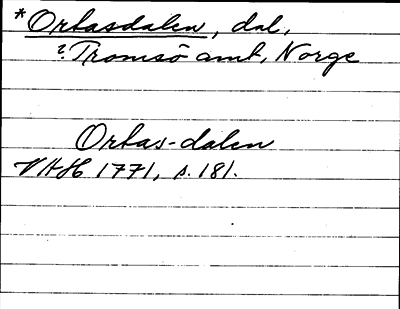 *Ortasdalen, dal,
? Tromsö amt, Norge
Ortas-dalen
VAH 1771, s. 181.